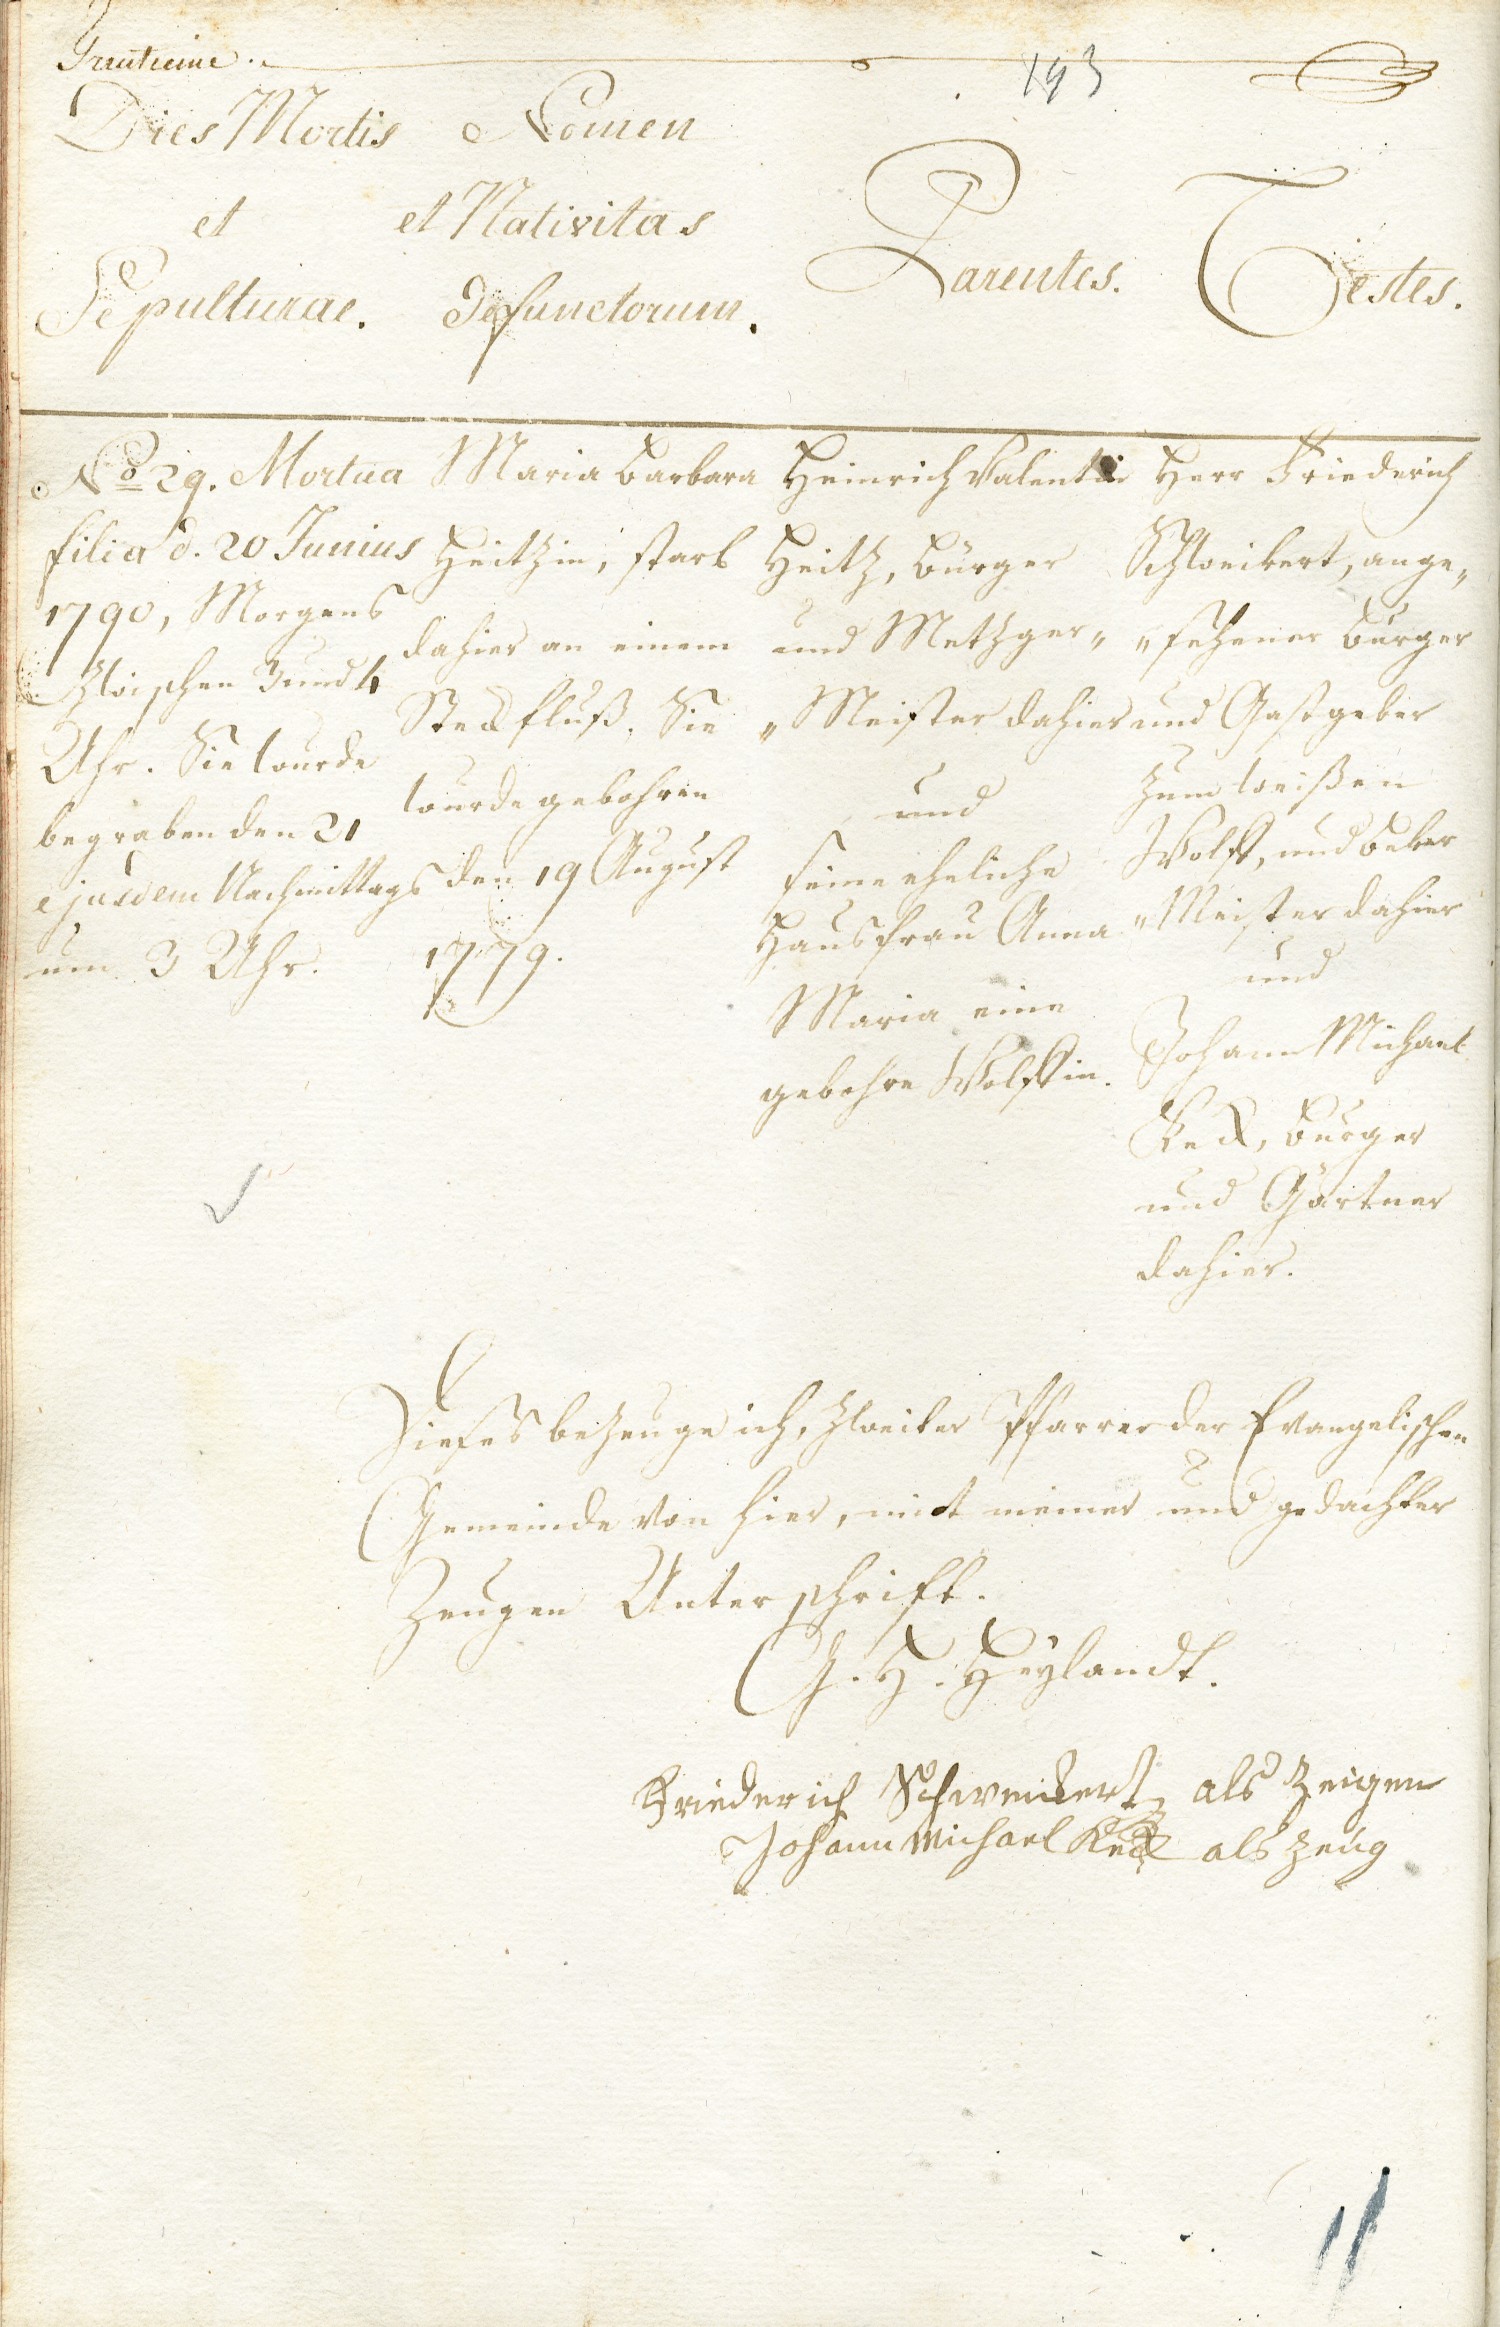 193
Dies Mortis
et
Sepulturae.
Nomen
et Nativitas
defunctorum.
Parentes.
Testes.
No 29. Mortua
filia d. 20 Junius
1790, Morgens
Zwischen 3 und 4
Uhr. Sie wurde
begraben den 21
ejusdem Nachmittags
um 3 Uhr.
Maria Barbara
Heitzin, starb
dahier an einem
Steckfluß. Sie
wurde gebohren
den 19 August
1779.
Heinrich Valentin
Heitz, Bürger
und Metzger„
„Meister dahier
und
seine eheliche
Hausfrau Anna
Maria eine
gebohre Wolffin.
Herr Friederich
Schweikert, ange„
„sehener Bürger
und Gastgeber
Zum weißen
Wolff, und Beker
„Meister dahier
und
Johann Michael
Keck, Bürger
und Gärtner
dahier.
Dieses bezeuge ich, Zweiter Pfarrer der Evangelischen
Gemeinde von hier, mit meiner und gedachter
Zeugen Unterschrift.
G. H. Heylandt.
Friederich Schweickert als Zeigen
Johann Michael Keck als Zeug